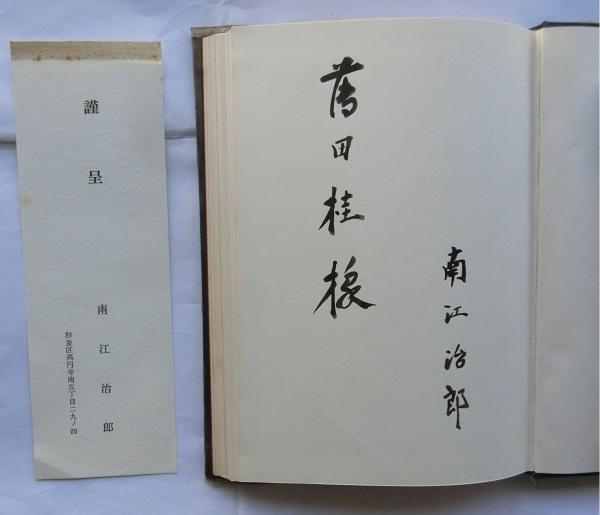 謹呈
南江治郎
杉並区高円寺南五丁目二九ノ四
薔田桂様
南江治郎